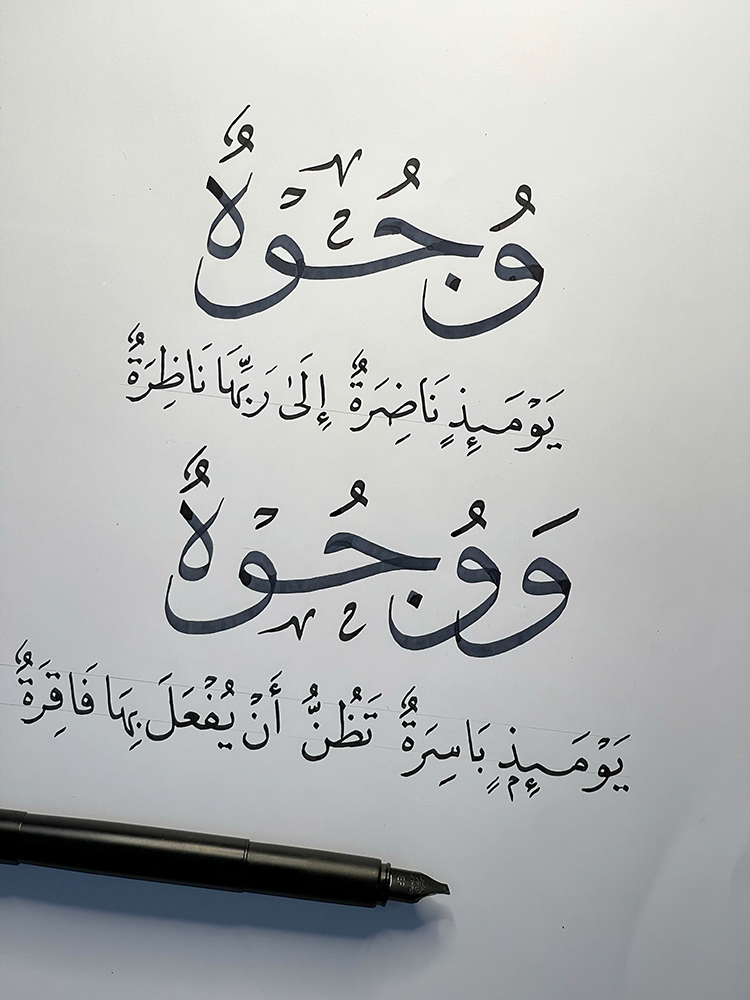 وُجُوْهٌ
يَوْمَىِٕذٍ نَاضِرَةٌ إِلَىٰ رَبِّهَا نَاظِرَةٌ
وَوُجُوْهٌ
يَوْمَىِٕذٍۭ بَاسِرَةٌ تَظُنُّ أَنْ يُفْعَلَ بِهَا فَاقِرَةٌ